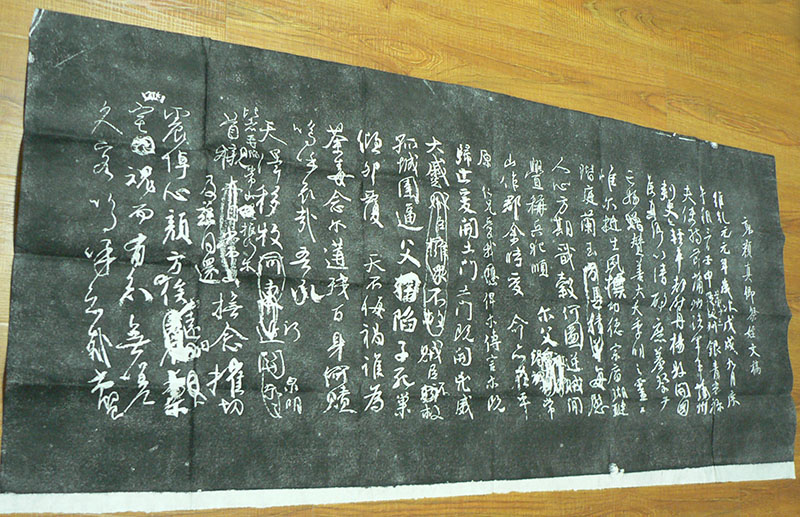 唐顏真卿祭姪文稿
維乾元元年歲次戊戌九月庚
午朔三日壬申銀青光祿
夫使持節蒲州諸軍事蒲州
刺史上輕車都尉丹楊縣開國
侯真卿以清酌庶羞祭于
亡姪贈贊善大夫季明之靈曰
惟爾挺生夙標幼德宗廟瑚璉
階庭蘭玉每慰
人心方期戩穀何圖逆賊閒
釁稱兵犯順爾父竭誠常
山作郡余時受命亦在平
原仁兄愛我俾爾傳言爾既
歸止爰開土門土門既開凶威
大蹙賊臣不救
孤城圍逼父陷子死巢
傾卵覆天不悔禍誰爲
荼毒念爾遘殘百身何贖
嗚乎哀哉吾承
天澤移牧河關泉明
比者再陷常山攜爾
首櫬及茲同還撫念摧切
震悼心顏方俟遠日
宅魂而有知無嗟
久客嗚呼哀哉尚饗